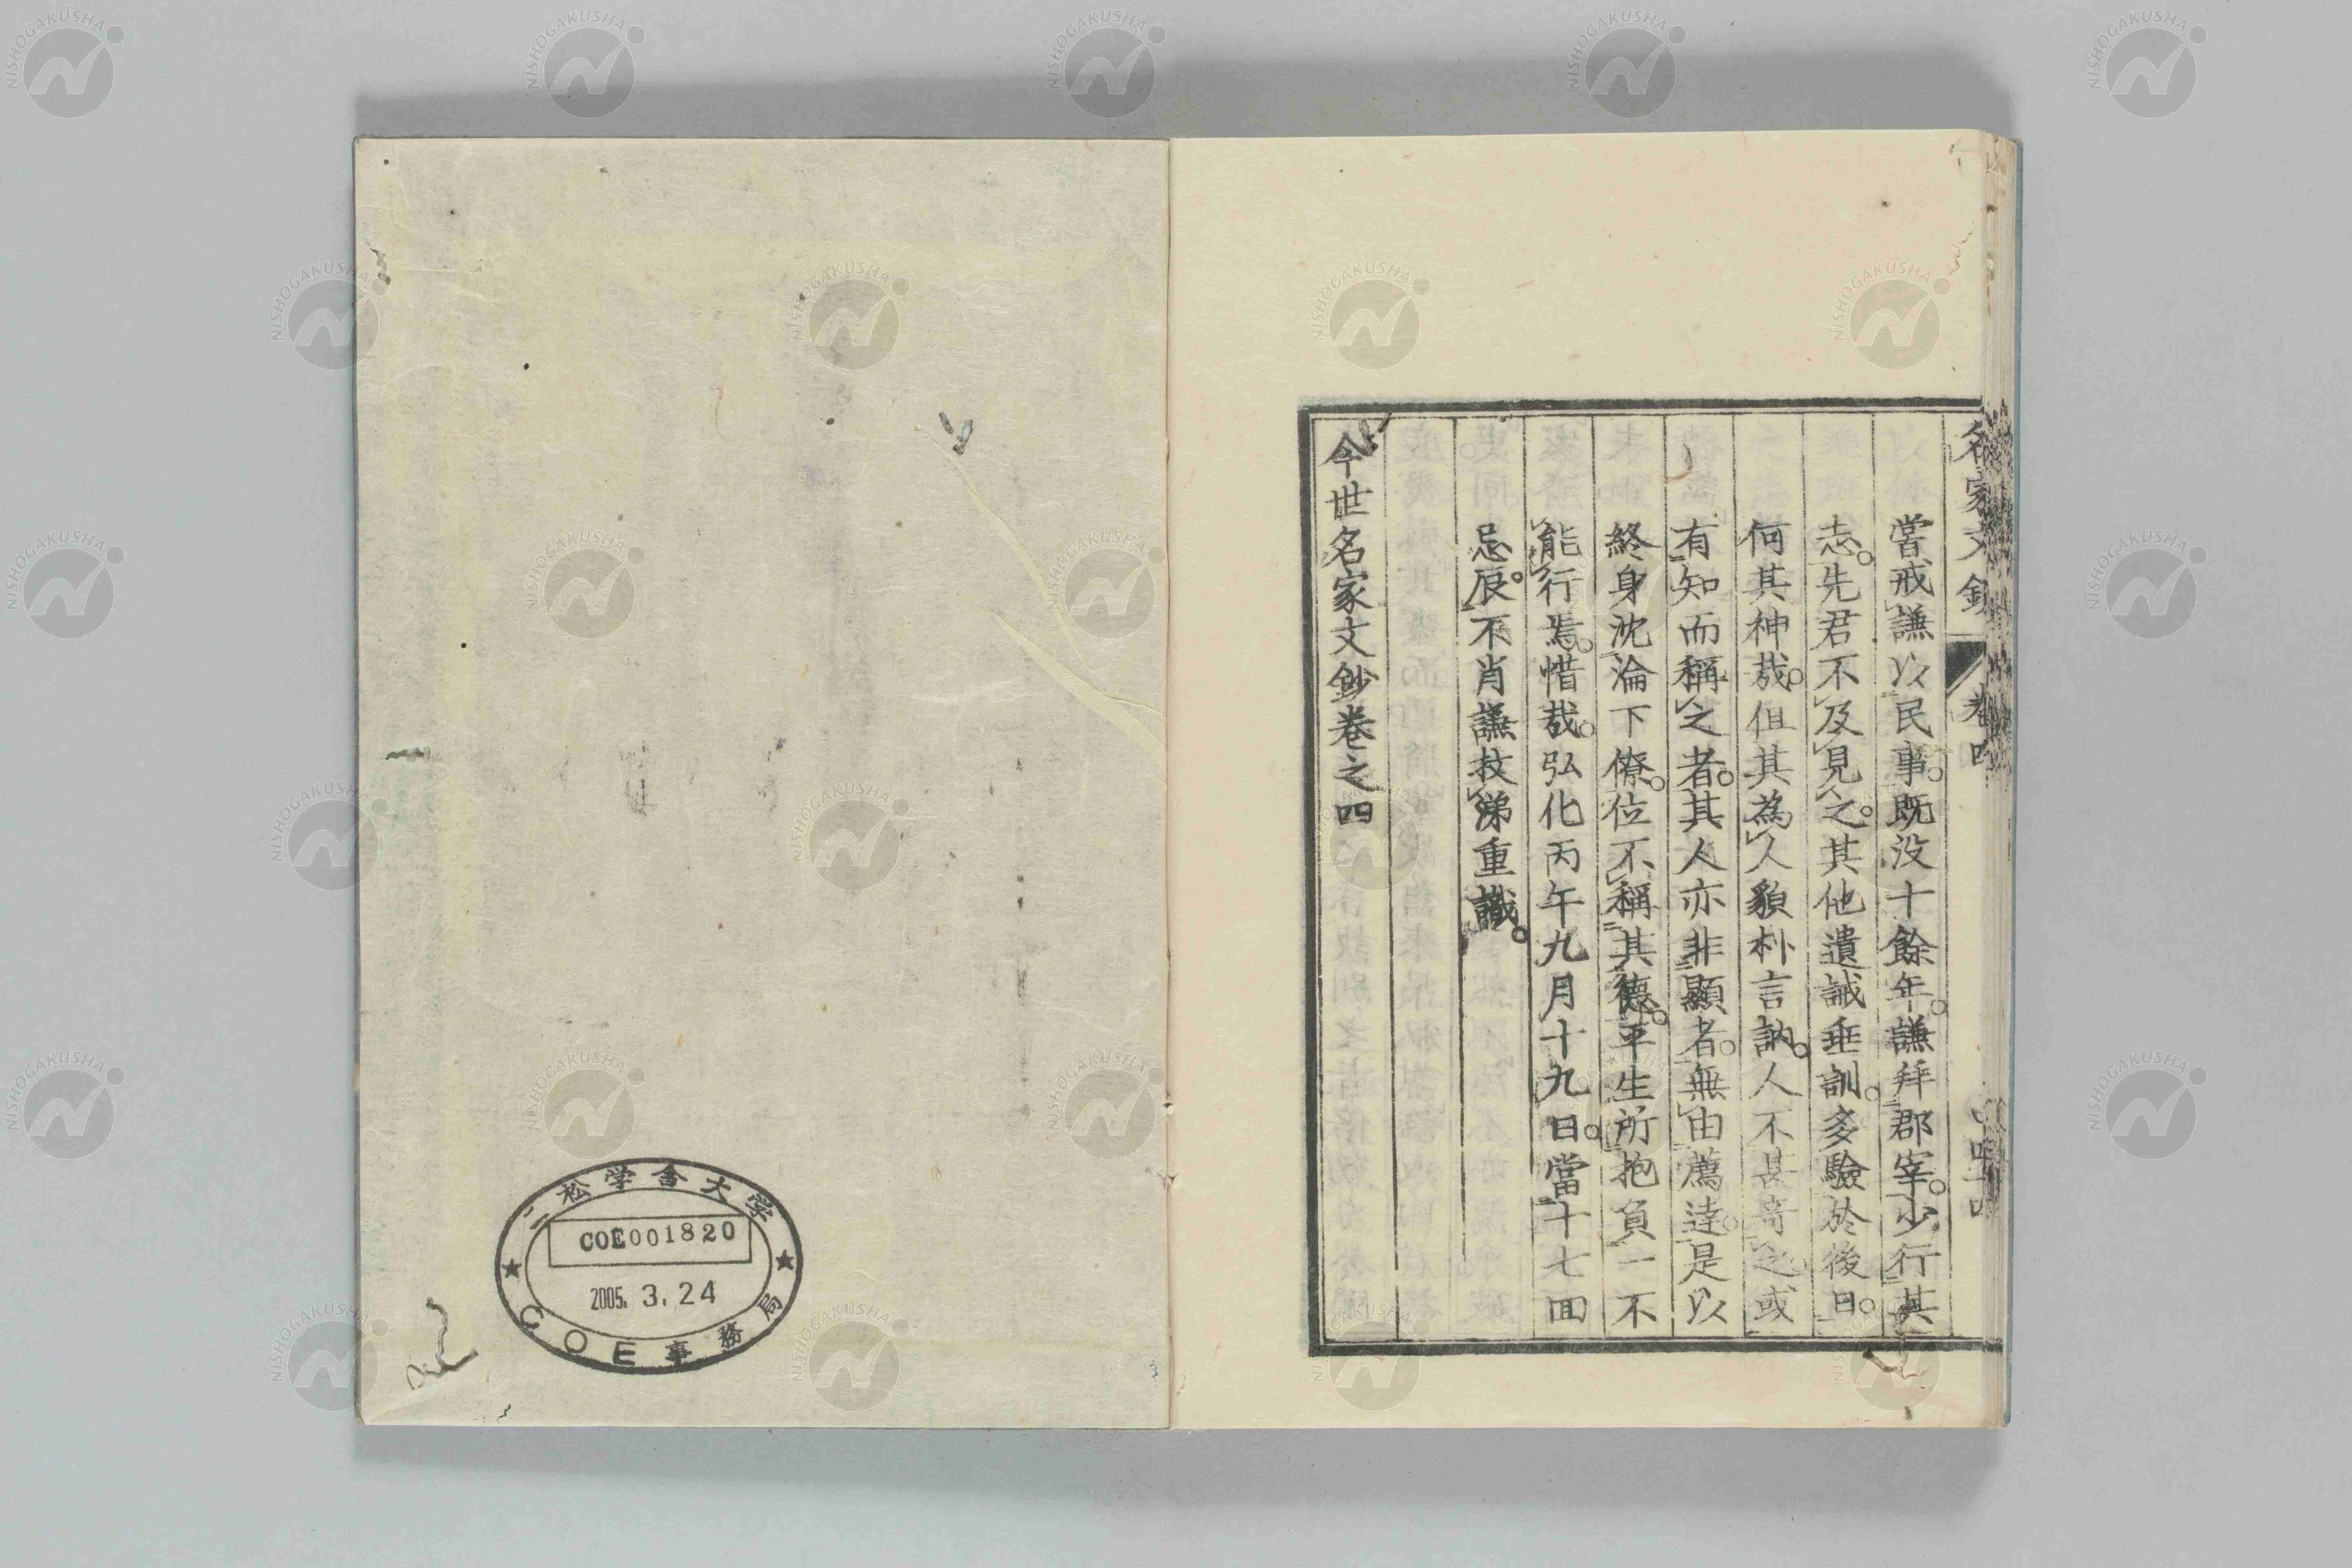 名家文鈔 卷四
嘗戒謙以民事。既没十餘年。謙拜郡宰。少行其
志。先君不及見之。其他遺誡垂訓。多驗於後日。
何其神哉。但其為人貌朴言訥。人不甚奇之。或
有知而稱之者。其人亦非顯者。無由薦達。是以
終身沈淪下僚。位不稱其德。平生所抱負一不
能行焉。惜哉。弘化丙午九月十九日。當十七回
忌辰。不肖謙抆涕重識。
今世名家文鈔卷之四
二松学舎大学
COE001820
2005. 3. 24
COE事務局
NISHOGAKUSHA